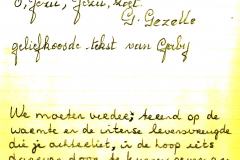 O, Jezu, Jezu, zoet.
G. Gezelle
geliefkoosde tekst van Gerby
We moeten verder, teend op de
warmte en de intense levensvreugde
die je achterliet, in de hoop iets
daarvan door te kunnen geven aan